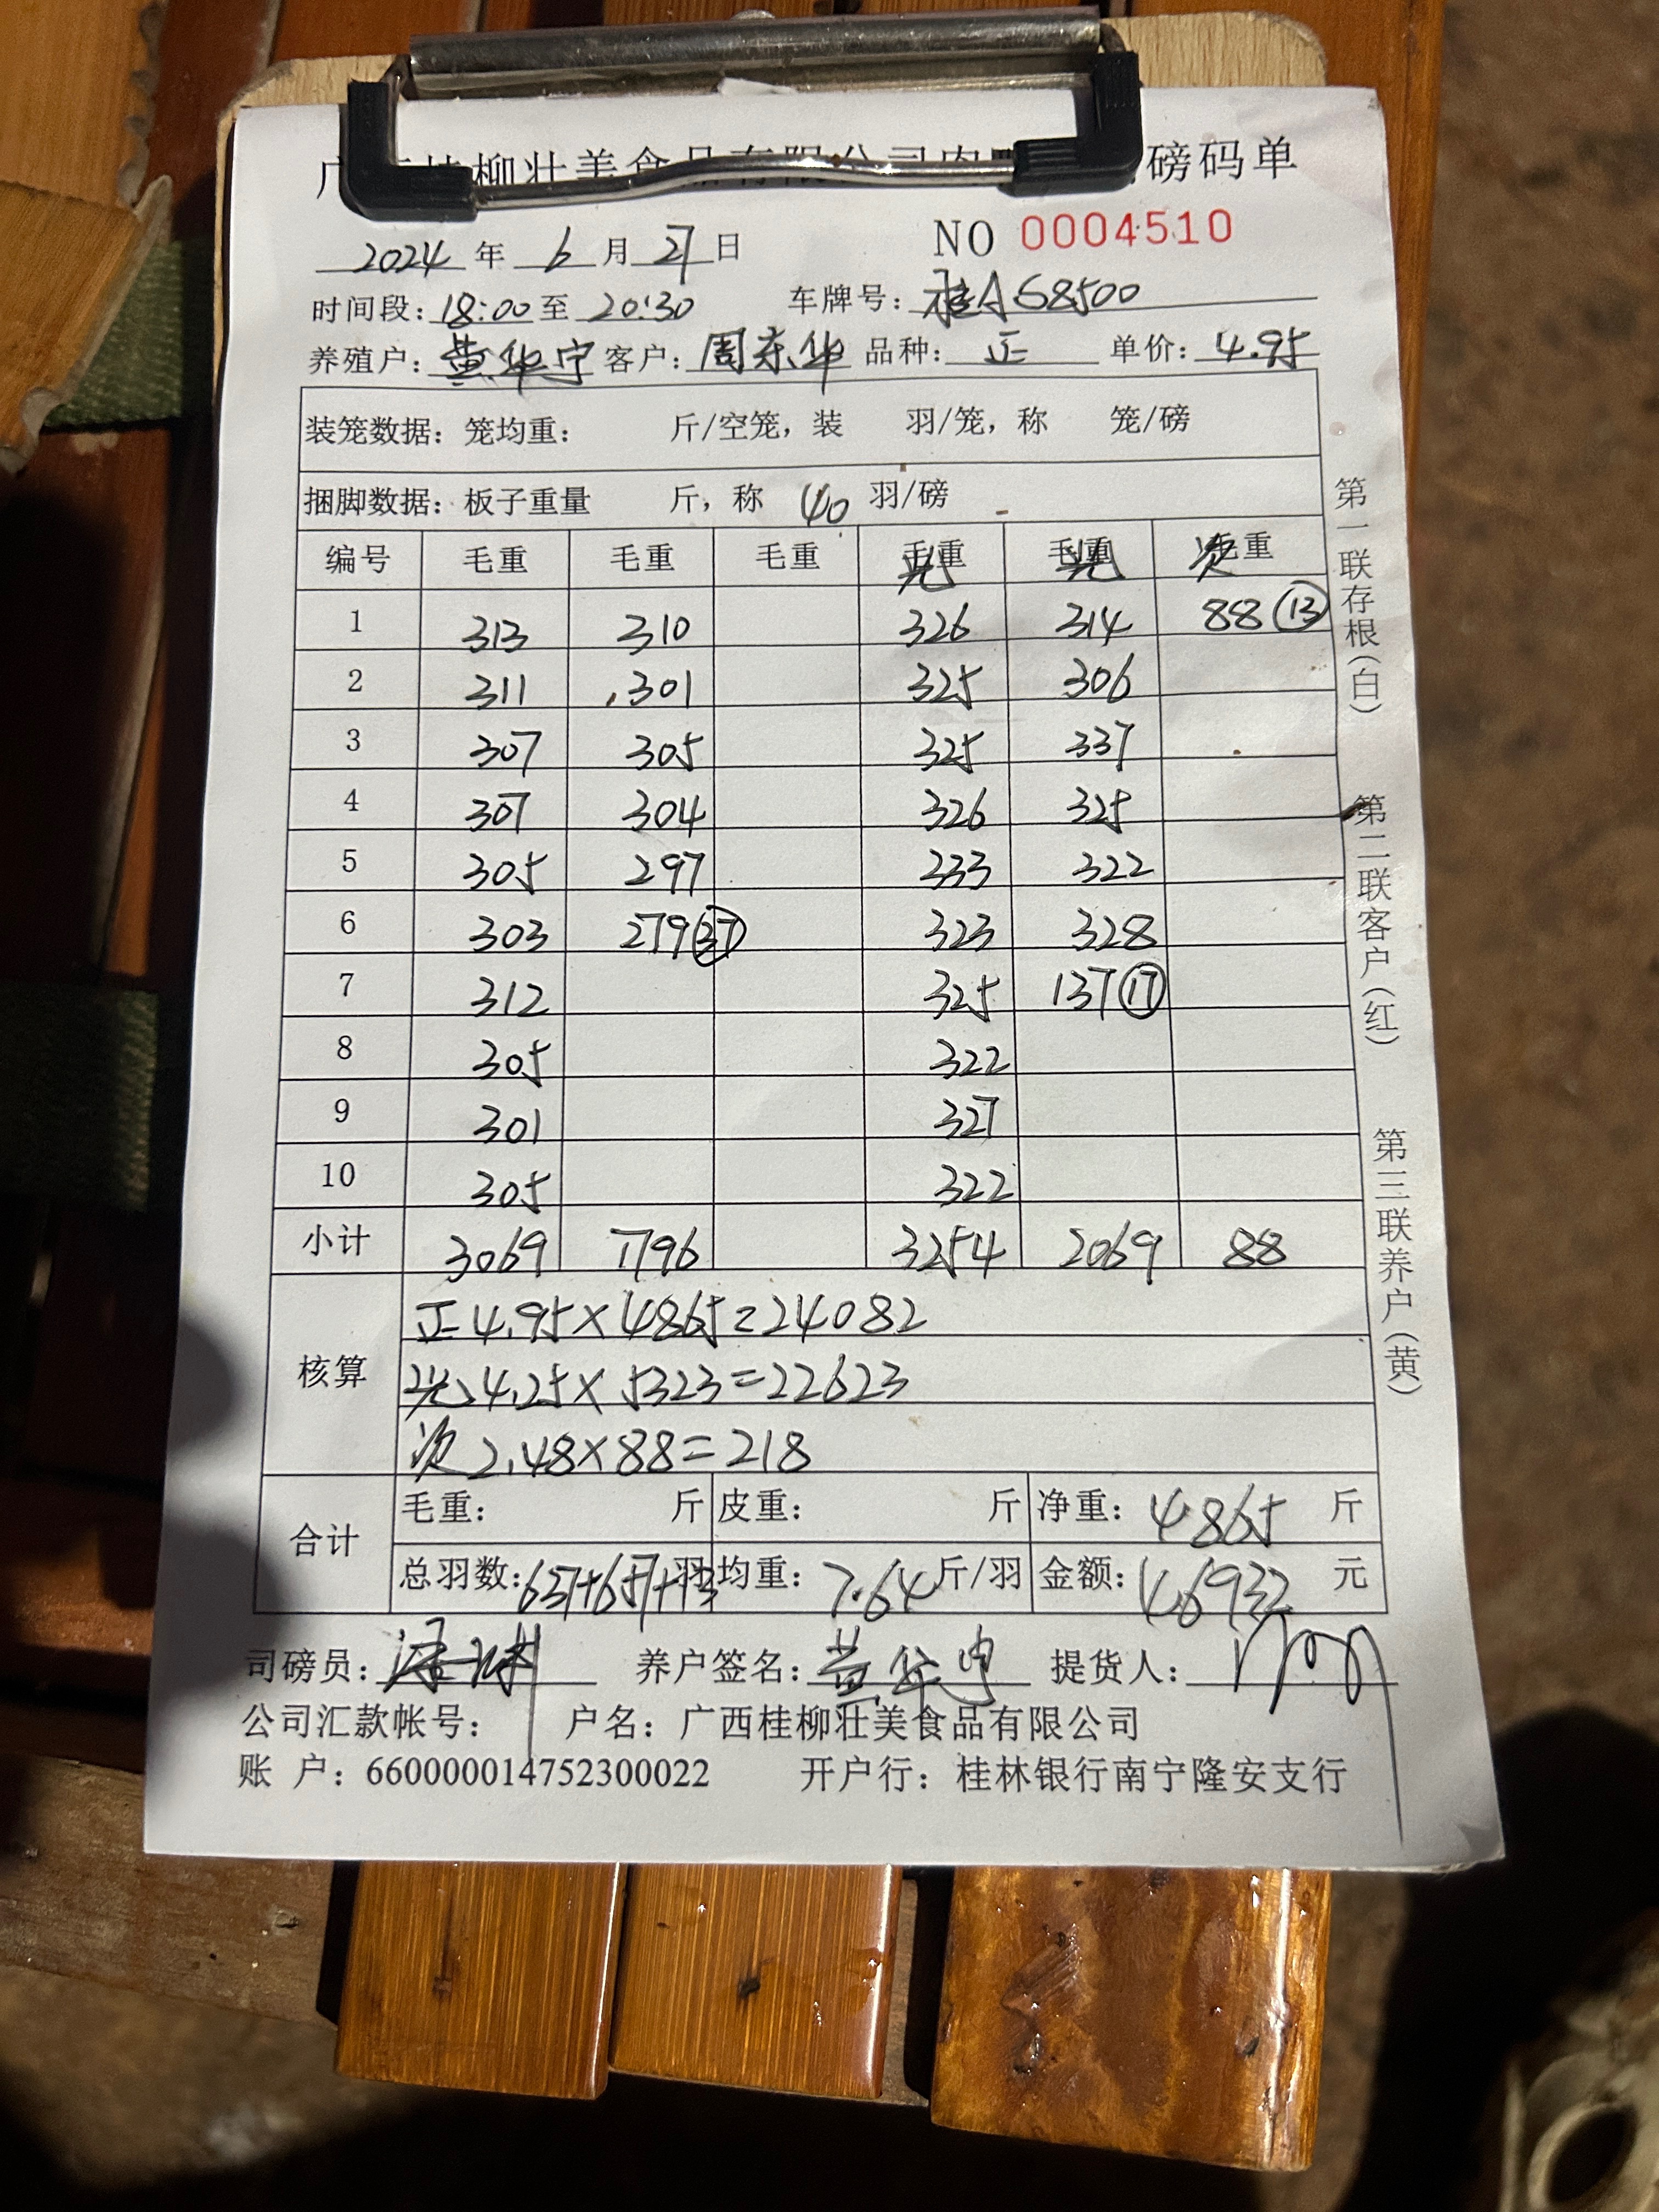 柳壮美食品有限公司肉 磅码单
2024 年 6 月 27 日 NO 0004510
时间段：18:00 至 20:30 车牌号：桂A68500
养殖户：黄华宁 客户：周东华 品种：正 单价：4.95
装笼数据：笼均重： 斤/空笼，装 羽/笼，称 笼/磅
捆脚数据：板子重量 斤，称 40 羽/磅
编号 毛重 毛重 毛重 毛重 光 毛重 光 毛重 次
1 313 310 326 314 88 ⑬
2 311 301 325 306
3 307 305 325 337
4 307 304 326 325
5 305 297 333 322
6 303 279 ㊲ 323 328
7 312 325 137 ⑰
8 305 322
9 301 327
10 305 322
小计 3069 1796 3254 2069 88
核算
正 4.95×4865=24082
光 4.25×5323=22623
次 2.48×88=218
合计
毛重： 斤 皮重： 斤 净重：4865 斤
总羽数：637+657+13 羽 均重：7.64 斤/羽 金额：46932 元
司磅员： 养户签名：黄华宁 提货人：
公司汇款帐号： 户名：广西桂柳壮美食品有限公司
账 户：660000014752300022 开户行：桂林银行南宁隆安支行
第一联存根（白）
第二联客户（红）
第三联养户（黄）